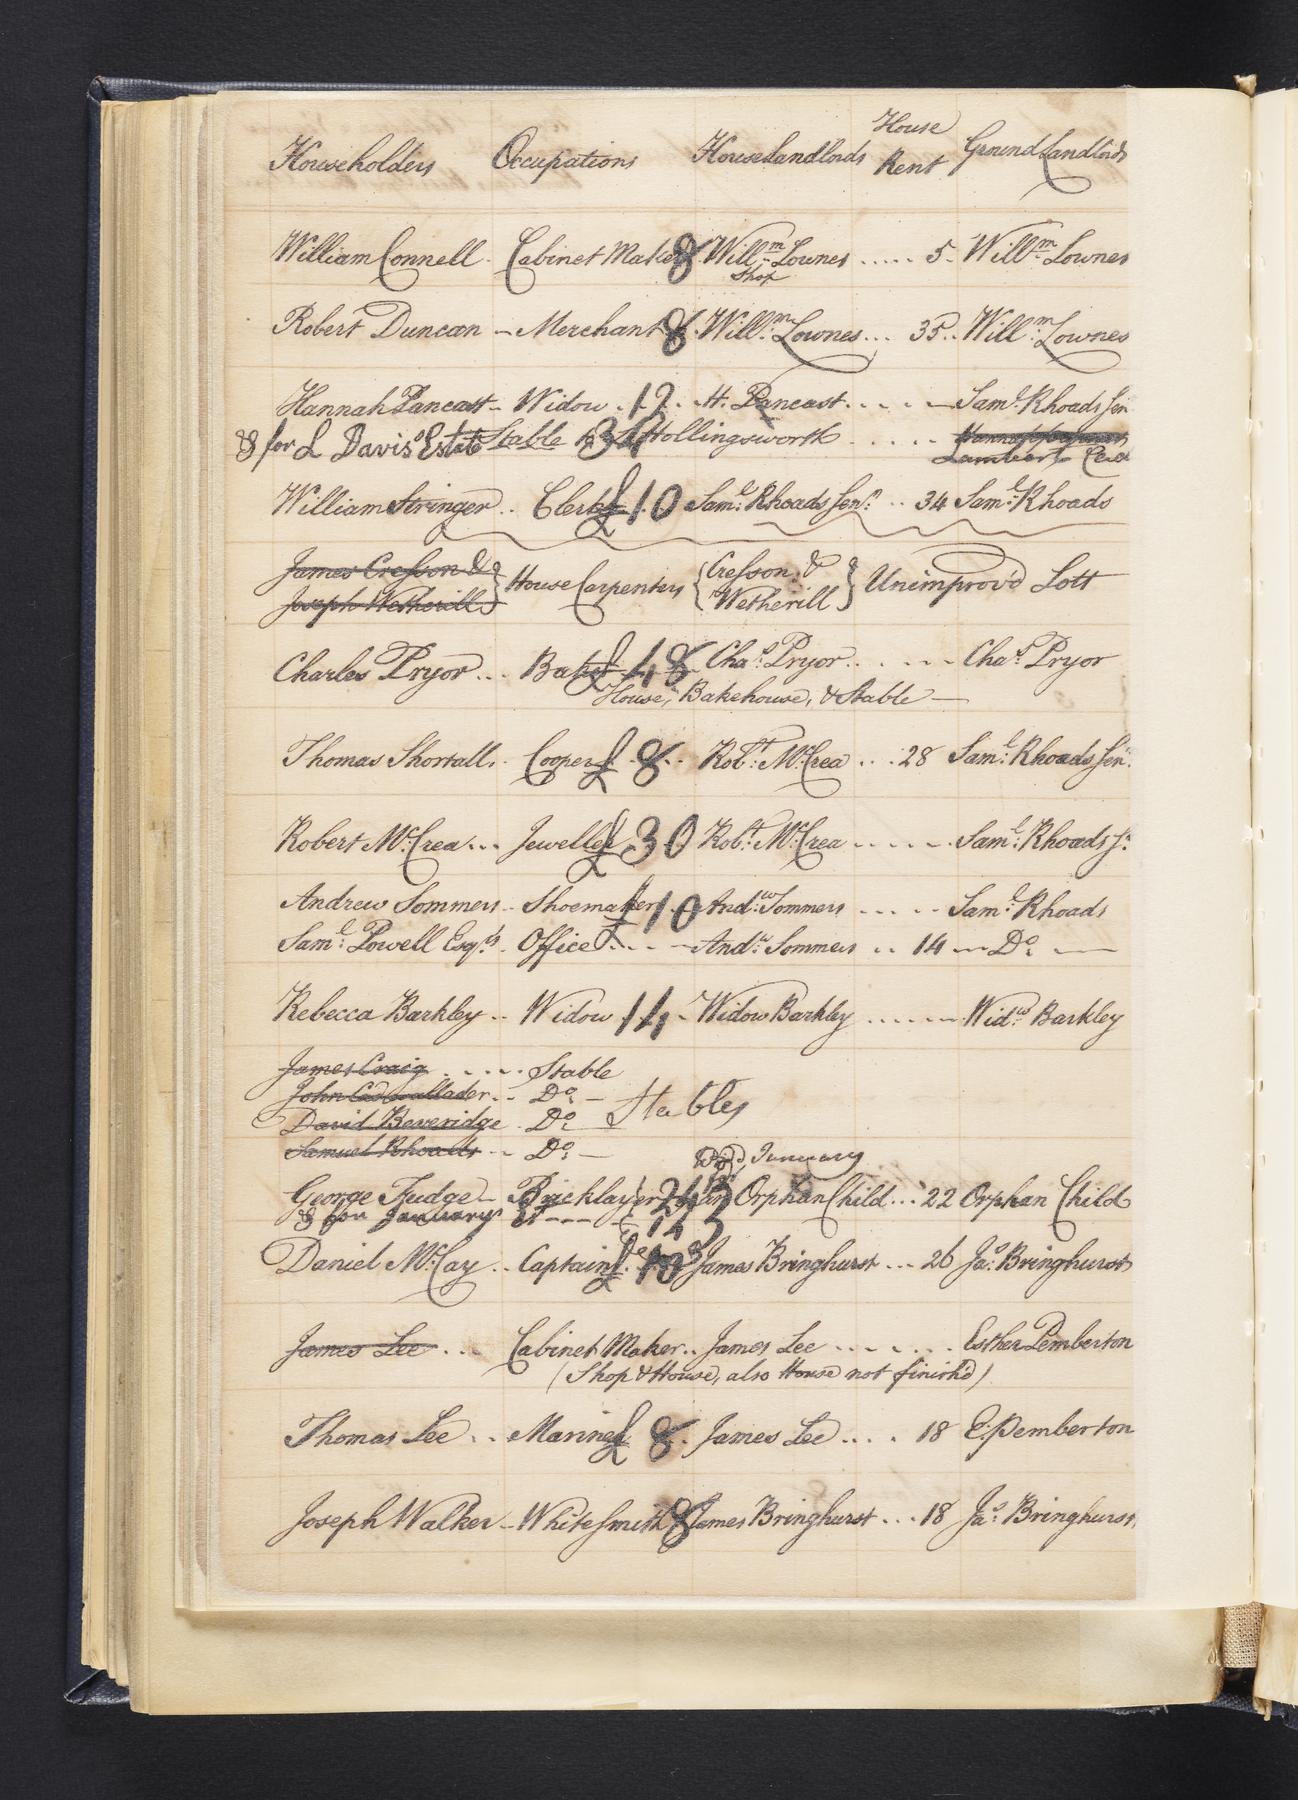 Householders Occupations House Landlords House Rent Ground Landlords
William Connell Cabinet Maker 8 Willm. Lownes ..... 5 Willm. Lownes
Shop
Robert Duncan - Merchant 8 Willm. Lownes ... 35 .. Willm. Lownes
Hannah Pancast - Widow . 12 .. H. Pancast . . . . Saml. Rhoads Sen
& for L Davis's Estate Stable Hollingsworth . . . . .
William Stringer .. Clerk £10 Saml. Rhoads Senr. .. 34 Saml. Rhoads
James Cresson & } House Carpenters { Cresson & } Unimprov'd Lott
Joseph Wetherill } { Wetherill }
Charles Pryor ... Baker £48 Chas. Pryor . . . . . Chas. Pryor
House, Bakehouse, & Stable
Thomas Shortall .. Cooper £ 8 .. Robt. McCrea ... 28 Saml. Rhoads Sen.
Robert McCrea ... Jeweller £30 Robt. McCrea . . . . . Saml. Rhoads Sr.
Andrew Sommers .. Shoemaker £10 Andw. Sommers . . . . . Saml. Rhoads
Saml. Powell Esqrs. Office . . . . Andw. Sommers .. 14 Do.
Rebecca Barkley .. Widow 14 . Widow Barkley ...... Widw. Barkley
James Craig . . . . . Stable
John Cadwallader ... Do. - Stables
David Beveridge . Do.
Samuel Rhoads .. Do. -
January
George Fudge - Bricklayer an Orphan Child ... 22 Orphan Child
& for Januarys Et
Daniel McCay .. Captain £ James Bringhurst ... 26 Jas. Bringhurst
James Lee ... Cabinet Maker .. James Lee . . . . . . . Esther Pemberton
(Shop & House, also House not finish'd)
Thomas Lee .. Mariner £ 8 . James Lee .... 18 E. Pemberton
Joseph Walker - White Smith 8 James Bringhurst ... 18 Jas. Bringhurst